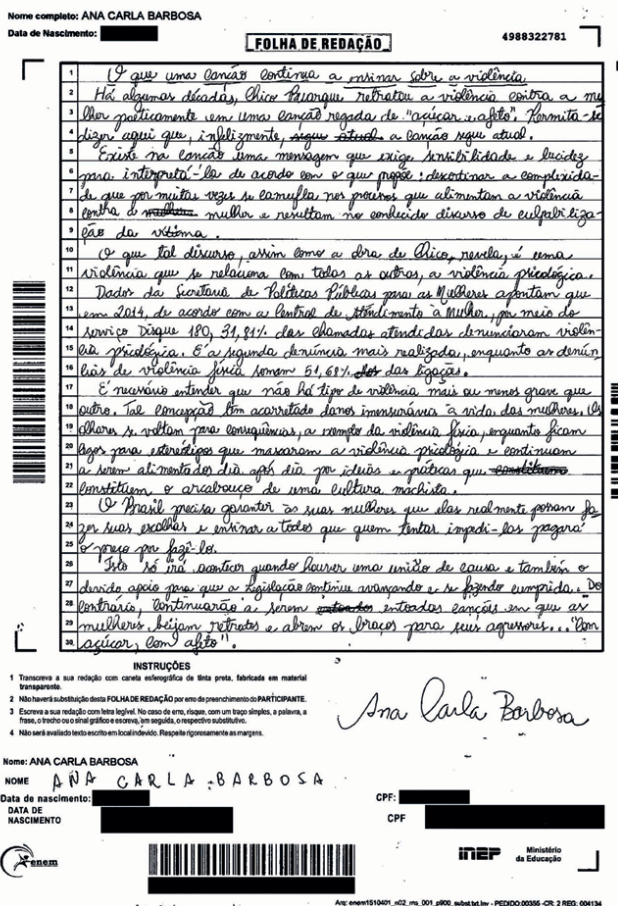 Nome completo: ANA CARLA BARBOSA
Data de Nascimento:
FOLHA DE REDAÇÃO
4988322781
1 O que uma canção continua a ensinar sobre a violência
2 Há algumas décadas, Chico Buarque retratou a violência contra a mu
3 lher poeticamente em uma canção regada de "açúcar e afeto". Permita-se
4 dizer aqui que, infelizmente, segue atual a canção segue atual.
5 Existe na canção uma mensagem que exige sensibilidade e lucidez
6 para interpretá-la de acordo com o que propõe: descortinar a complexida-
7 de que por muitas vezes se camufla nos processos que alimentam a violência
8 contra a mulher e resultam no conhecido discurso de culpabiliza-
9 ção da vítima.
10 O que tal discurso, assim como a obra de Chico, revela, é uma
11 violência que se relaciona com todas as outras, a violência psicológica.
12 Dados da Secretaria de Políticas Públicas para as Mulheres apontam que
13 em 2014, de acordo com a Central de Atendimento à Mulher, por meio do
14 serviço Disque 180, 31,81% das chamadas atendidas denunciaram violên-
15 cia psicológica. É a segunda denúncia mais realizada, enquanto as denún
16 cias de violência física somam 51,68% dos das ligações.
17 É necessário entender que não há tipo de violência mais ou menos grave que
18 outro. Tal concepção tem acarretado danos imensuráveis à vida das mulheres. Os
19 olhares se voltam para consequências, a exemplo da violência física, enquanto ficam
20 cegos para estereótipos que mascaram a violência psicológica e continuam
21 a serem alimentados dia após dia por ideias e práticas que constituem
22 constituem o arcabouço de uma cultura machista.
23 O Brasil precisa garantir às suas mulheres que elas realmente possam fa
24 zer suas escolhas e ensinar a todos que quem tentar impedi-las pagará
25 o preço por fazê-lo.
26 Isto só irá acontecer quando houver uma união de causa e também o
27 devido apoio para que a legislação continue avançando e se fazendo cumprida. Do
28 contrário, continuarão a serem entoadas canções em que as
29 mulheres beijam retratos e abrem os braços para seus agressores... "Com
30 açúcar, com afeto".
INSTRUÇÕES
1 Transcreva a sua redação com caneta esferográfica de tinta preta, fabricada em material
transparente.
2 Não haverá substituição desta FOLHA DE REDAÇÃO por erro de preenchimento do PARTICIPANTE.
3 Escreva a sua redação com letra legível. No caso de erro, risque, com um traço simples, a palavra, a
frase, o trecho ou o sinal gráfico e escreva, em seguida, o respectivo substitutivo.
4 Não será avaliado texto escrito em local indevido. Respeite rigorosamente as margens.
Ana Carla Barbosa
Nome: ANA CARLA BARBOSA
NOME ANA CARLA BARBOSA
Data de nascimento:
CPF:
DATA DE
NASCIMENTO
CPF
enem
INEP
Ministério
da Educação
Arq: enem1510401_n02_ms_001_p900_subst.txt.inv - PEDIDO:00355 -CR: 2 REG: 004134